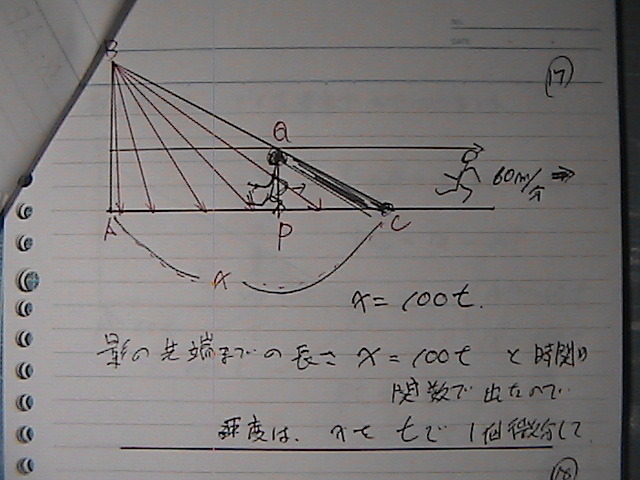 NO.
DATE
17
B
Q
60m/分 ⇒
A
P
C
x
x = 100t.
影の先端までの長さ x = 100t と時間の
関数で出たので
速度は、xを tで 1回微分して
18